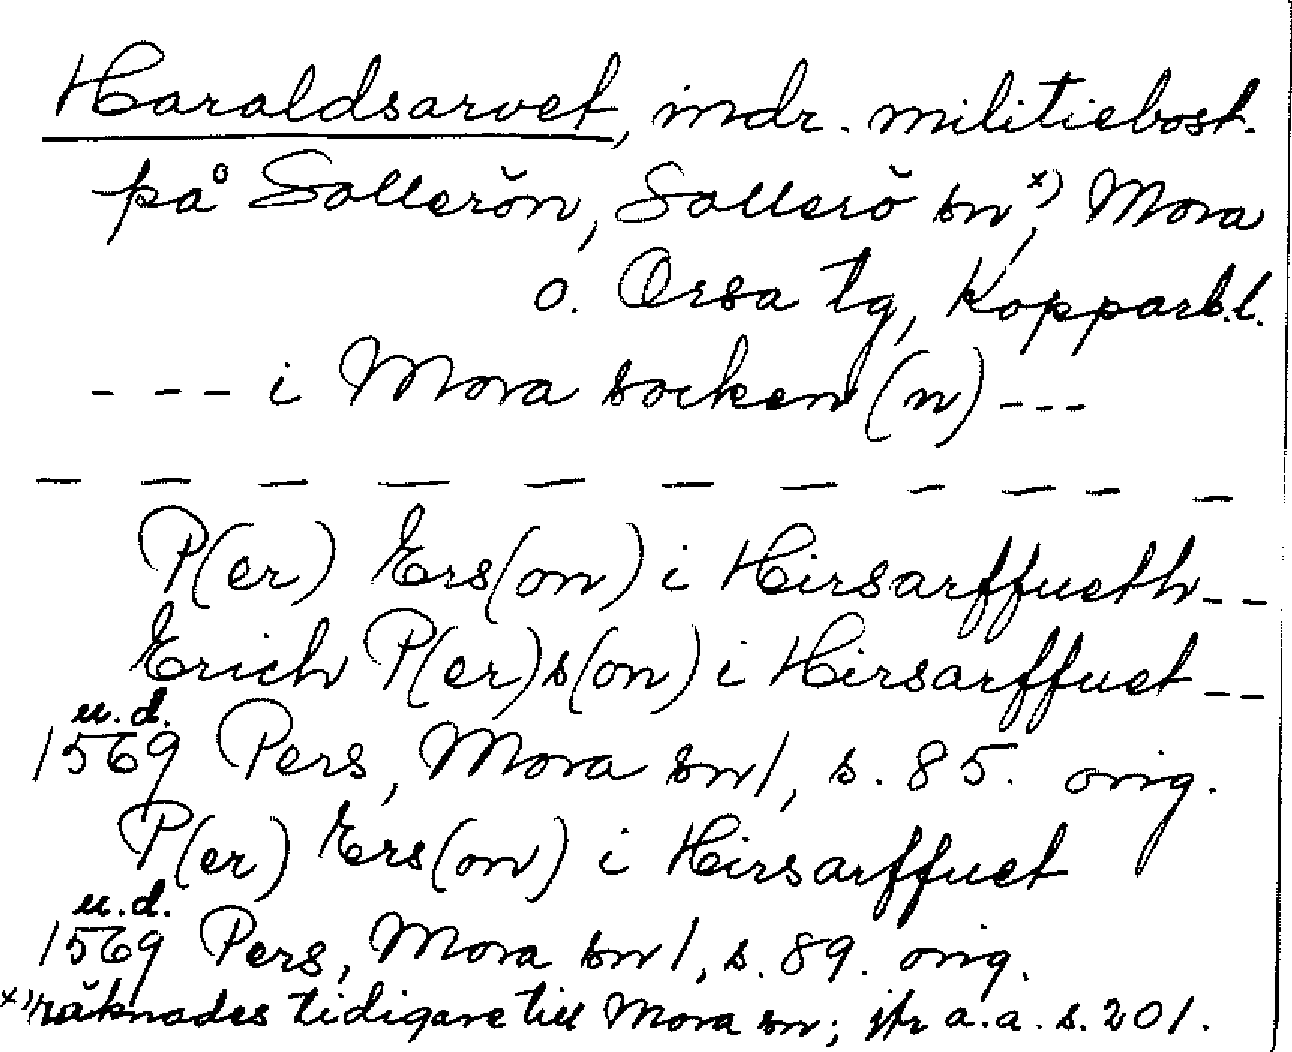 Haraldsarvet, indr. militiebost.
på Sollerön, Sollerö sn x), Mora
o. Orsa tg, Kopparb.l.
--- i Mora socken(n) ---
— — — — — — — — — — —
P(er) Ers(on) i Hirsarffueth--
Erich P(er)s(on) i Hirsarffuet--
u.d.
1569 Pers, Mora sn 1, s. 85. orig.
P(er) Ers(on) i Hirsarffuet
u.d.
1569 Pers, Mora sn 1, s. 89. orig.
x) räknades tidigare till Mora sn; jfr a.a. s. 201.